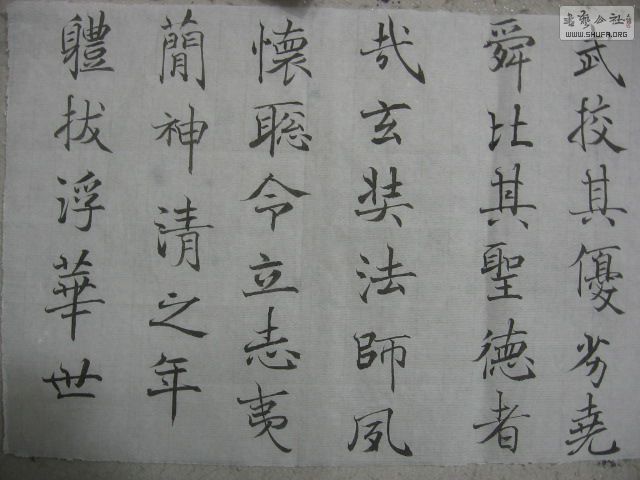 武挍其優劣堯
舜比其聖德者
哉玄奘法師夙
懷聡令立志夷
蕳神清之年
軆拔浮華世
書藝公社
WWW.SHUFA.ORG